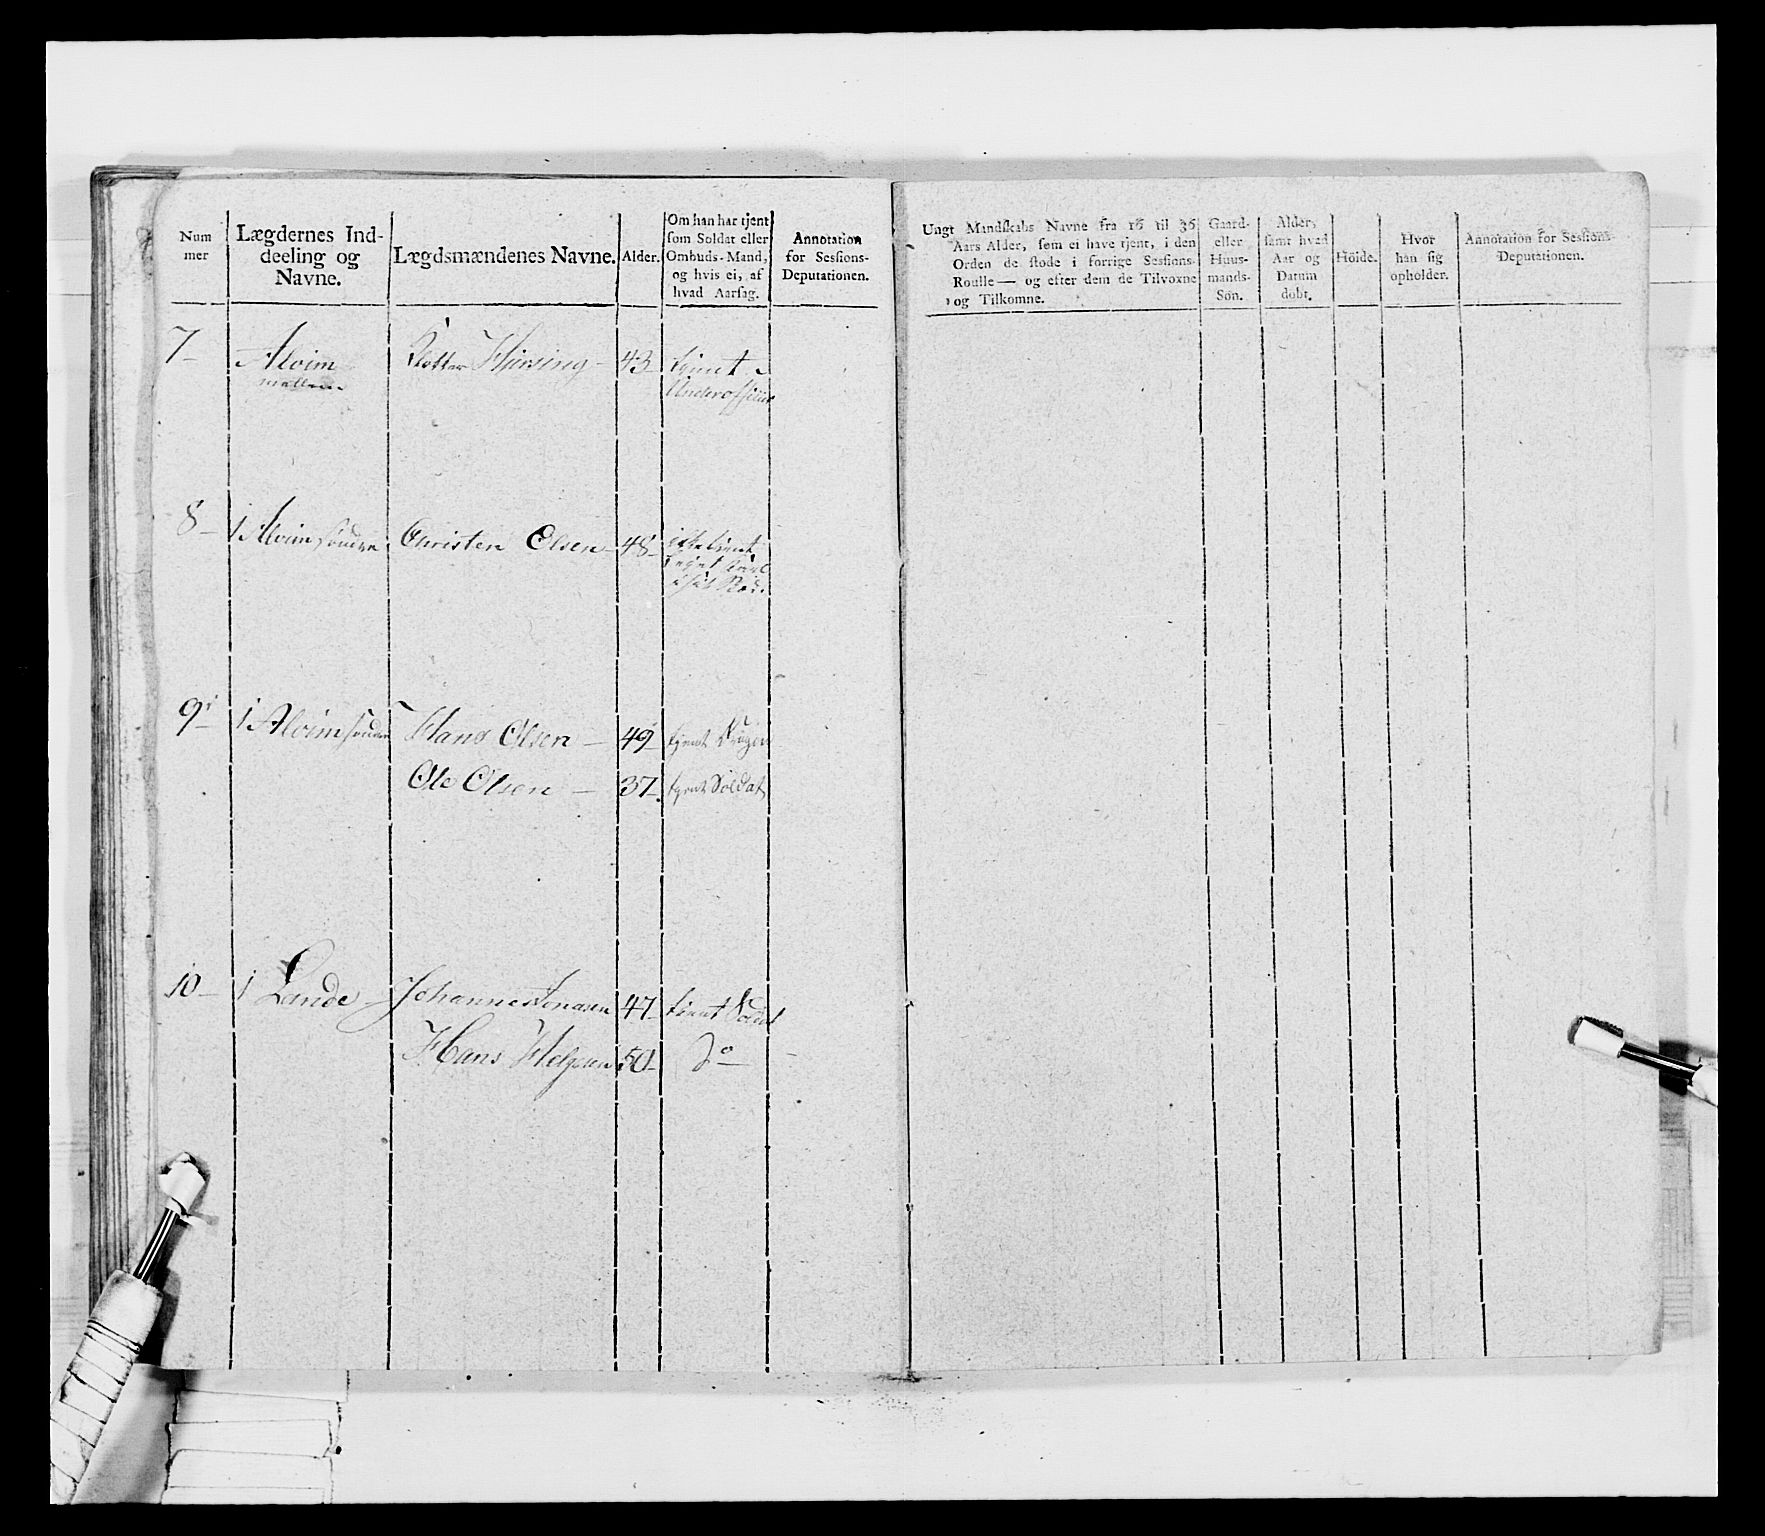 Num
mer
Lægdernes Ind-
deeling og
Navne.
Lægdsmændenes Navne.
Alder.
Om han har tjent
som Soldat eller
Ombuds-Mand,
og hvis ei, af
hvad Aarsag.
Annotation
for Sessions-
Deputationen.
7 Alvim Hiersing 43 tjent
mellem Underofficier
8 1 Alvim søndre Christen Olsen 48 ikke tient
9 1 Alvim søndre Hans Olsen 49 tjent
Ole Olsen 37 tjent Soldat
10 1 Lande Johannes Jonasen 47 tient Soldat
Hans Helgesen 50 Do
Ungt Mandskabs Navne fra 16 til 36
Aars Alder, som ei have tjent, i den
Orden de stode i forrige Sessions-
Roulle — og efter dem de Tilvoxne
og Tilkomne.
Gaard-
eller
Huus-
mands-
Søn.
Alder,
samt hvad
Aar og
Datum
døbt.
Höide.
Hvor
han sig
opholder.
Annotation for Sessions-
Deputationen.